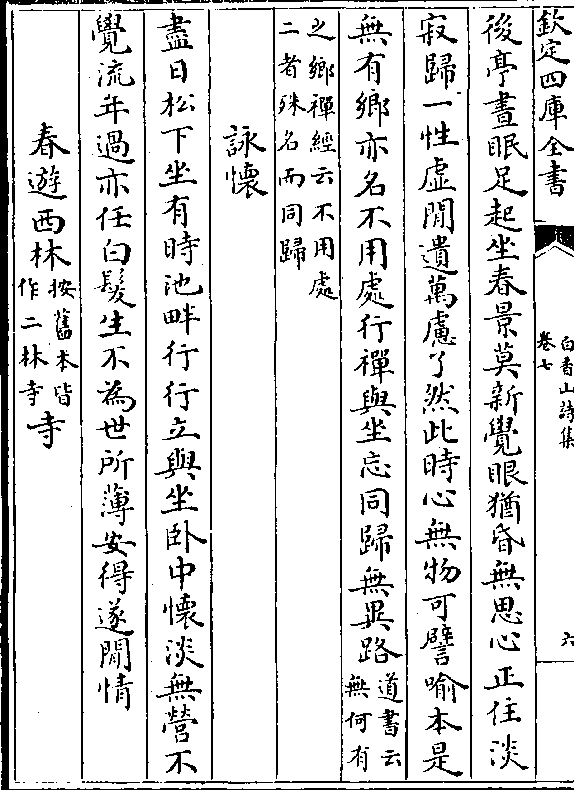 欽定四庫全書
白香山詩集
卷七
六
後亭晝眠足起坐春景莫新覺眼猶昏無思心正住淡
寂歸一性虛閒遺萬慮了然此時心無物可譬喻本是
無有鄉亦名不用處行禪與坐忘同歸無異路道書云
無何有
之鄉禪經云不用處
二者殊名而同歸
詠懷
盡日松下坐有時池畔行行立與坐卧中懷淡無營不
覺流年過亦任白髮生不為世所薄安得遂閒情
春遊西林按舊本皆
作二林寺寺